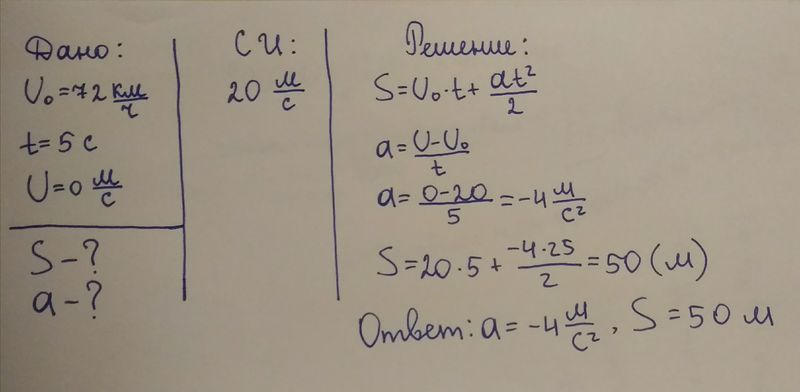 Дано:
υ₀=72 км/ч
t=5 с
υ=0 м/с
S-?
a-?
СИ:
20 м/с
Решение:
S=υ₀·t+at²/2
a=υ-υ₀/t
a=0-20/5=-4 м/с²
S=20·5+-4·25/2=50(м)
Ответ: a=-4 м/с², S=50 м